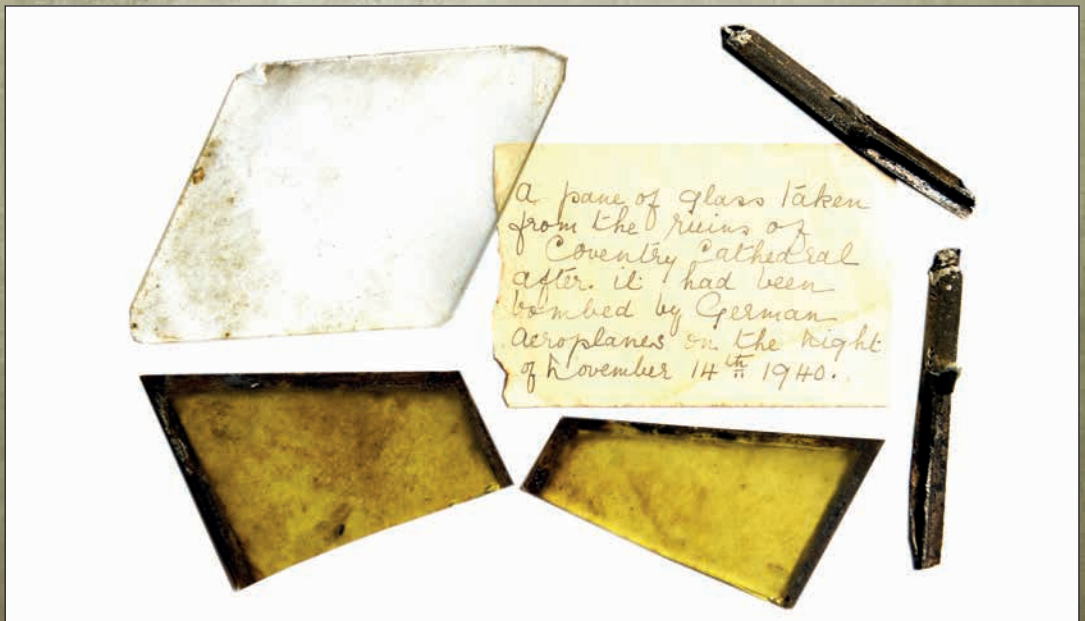 A pane of glass taken
from the ruins of
Coventry Cathedral
after it had been
bombed by German
Aeroplanes on the night
of November 14th 1940.